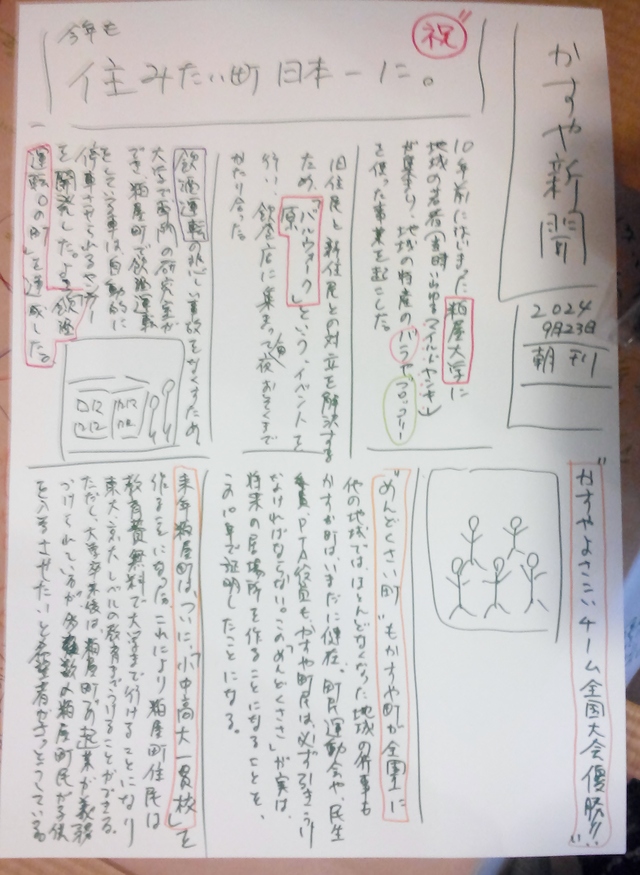 かすや新聞
2024
9月23日
朝刊
祝
今年も
住みたい町日本一に。
10年前にはじまった粕屋大学に
地域の若者(当時いわゆるマイルドヤンキー)
が集まり、地域の特産のバラやブロッコリー
を使った事業を起こした。
旧住民と新住民との対立を解決する
ため、「バルウォーク
原」という、イベントを
行い、飲食店に集まって夜おそくまで
かたり合った。
飲酒運転の悲しい事故をなくすため
大学で専門の研究室が
でき、粕屋町で飲酒運転
をしている車は自動的に
停車させられるセンサー
を開発した。よって「飲酒
運転0の町」を達成した。
"かすやよさこいチーム全国大会優勝!!"
"めんどくさい町"もかすや町が全国1に
他の地域では、ほとんどなくなった地域の行事も
かすや町は、いまだに健在。町民運動会や、民生
委員、PTA役員も、かすや町民は必ず引きうけ
なければならない。この「めんどくささ」が実は、
将来の居場所を作ることになることを、
この10年で証明したことになる。
来年粕屋町は、ついに、「小中高大一貫校」を
作ることになった。これにより粕屋町住民は
教育費無料で大学まで行けることになり
東大、京大レベルの教育までうけることができる。
ただし、大学卒業後は、粕屋町での起業が義務
づけられているが、多数の粕屋町民が子供
を入学させたいと希望者がさっとうしている